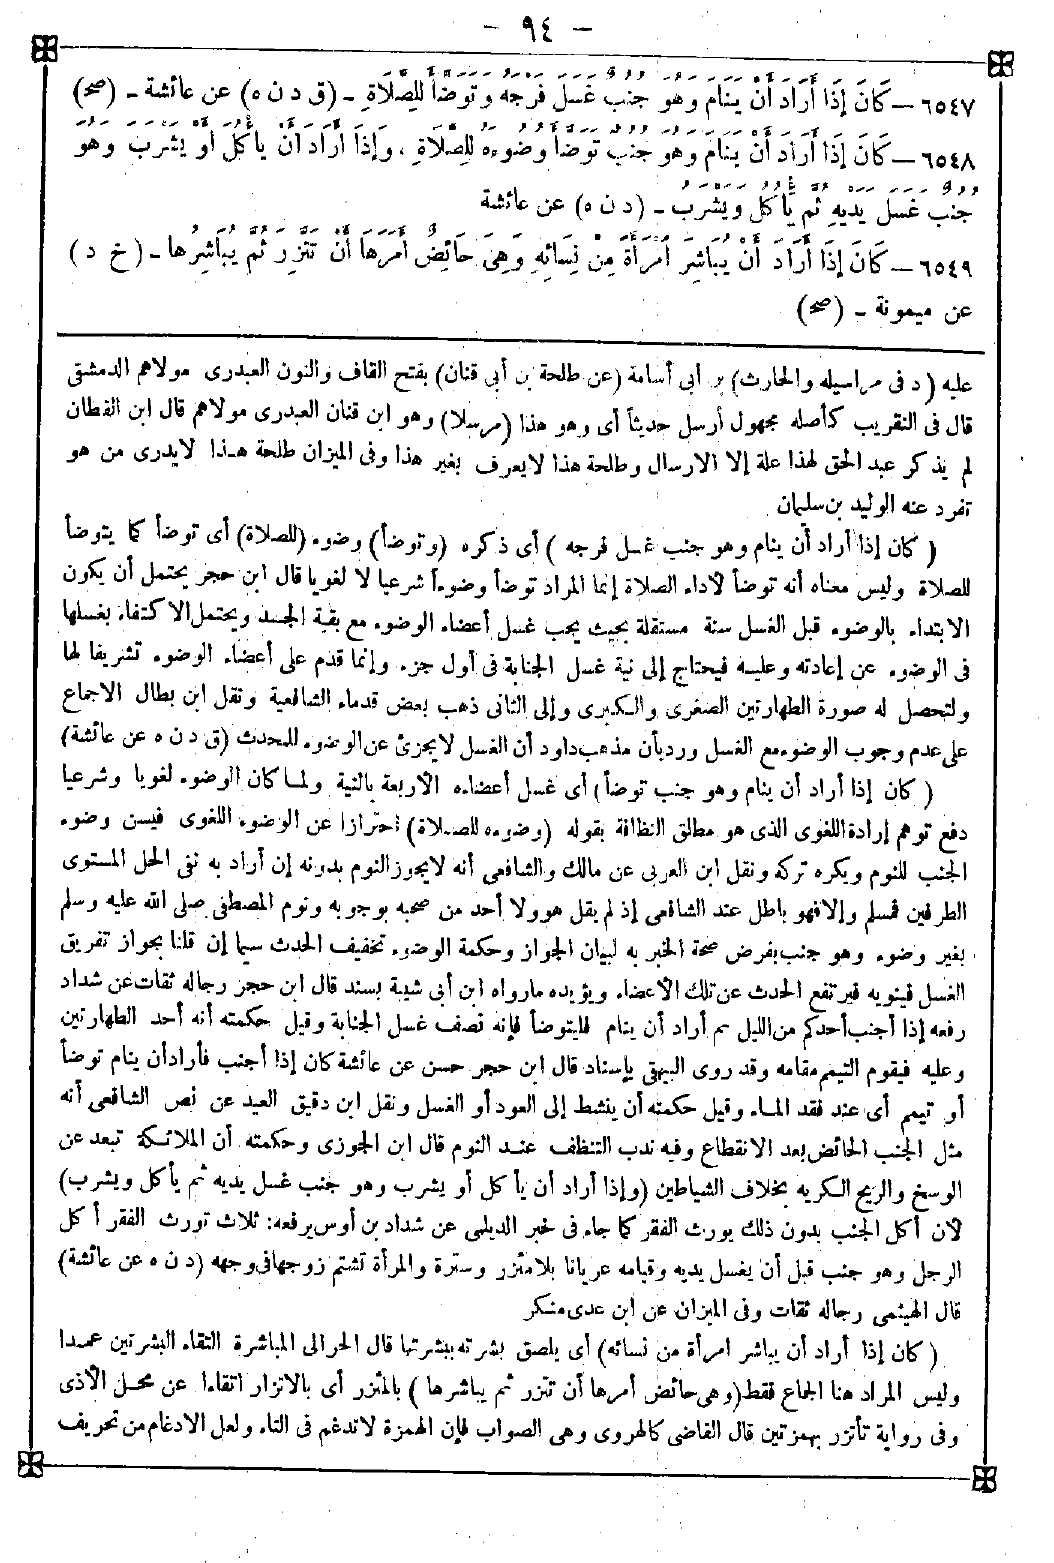 - ٩٤ -
٦٥٤٧ - كَانَ إِذَا أَرَادَ أَنْ يَنَامَ وَهُوَ جُنُبٌ غَسَلَ فَرْجَهُ وَتَوَضَّأَ لِلصَّلَاةِ - (ق د ن ه) عن عائشة - (صح)
٦٥٤٨ - كَانَ إِذَا أَرَادَ أَنْ يَنَامَ وَهُوَ جُنُبٌ تَوَضَّأَ وُضُوءَهُ لِلصَّلَاةِ ، وَإِذَا أَرَادَ أَنْ يَأْكُلَ أَوْ يَشْرَبَ وَهُوَ
جُنُبٌ غَسَلَ يَدَيْهِ ثُمَّ يَأْكُلُ وَيَشْرَبُ - (د ن ه) عن عائشة
٦٥٤٩ - كَانَ إِذَا أَرَادَ أَنْ يُبَاشِرَ امْرَأَةً مِنْ نِسَائِهِ وَهِيَ حَائِضٌ أَمَرَهَا أَنْ تَتَّزِرَ ثُمَّ يُبَاشِرُهَا - (خ د)
عن ميمونة - (صح)
عليه (د فى مراسيله والحارث) بن أبى أسامة (عن طلحة بن أبى قنان) بفتح القاف والنون العبدرى مولاهم الدمشقى
قال فى التقريب كأصله مجهول أرسل حديثاً أى وهو هذا (مرسلا) وهو ابن قنان العبدرى مولاهم قال ابن القطان
لم يذكر عبد الحق لهذا علة إلا الارسال وطلحة هذا لايعرف بغير هذا وفى الميزان طلحة هذا لايدرى من هو
تفرد عنه الوليد بن سليمان
(كان إذا أراد أن ينام وهو جنب غسل فرجه) أى ذكره (وتوضأ) وضوء (للصلاة) أى توضأ كما يتوضأ
للصلاة وليس معناه أنه توضأ لأداء الصلاة إنما المراد توضأ وضوءاً شرعيا لا لغويا قال ابن حجر يحتمل أن يكون
الابتداء بالوضوء قبل الغسل سنة مستقلة بحيث يجب غسل أعضاء الوضوء مع بقية الجسد ويحتمل الاكتفاء بغسلها
فى الوضوء عن إعادته وعليه فيحتاج إلى نية غسل الجنابة فى أول جزء وإنما قدم على أعضاء الوضوء تشريفا لها
ولتحصل له صورة الطهارتين الصغرى والكبرى وإلى الثانى ذهب بعض قدماء الشافعية ونقل ابن بطال الاجماع
على عدم وجوب الوضوء مع الغسل ورد بأن مذهب داود أن الغسل لايجزئ عن الوضوء للمحدث (ق د ن ه عن عائشة)
(كان إذا أراد أن ينام وهو جنب توضأ) أى غسل أعضاءه الأربعة بالنية ولما كان الوضوء لغويا وشرعيا
دفع توهم إرادة اللغوى الذى هو مطلق النظافة بقوله (وضوءه للصلاة) احترازا عن الوضوء اللغوى فيسن وضوء
الجنب للنوم ويكره تركه ونقل ابن العربى عن مالك والشافعى أنه لايجوز النوم بدونه إن أراد به نفى الحل المستوى
الطرفين فمسلم وإلا فهو باطل عند الشافعى إذ لم يقل هو ولا أحد من صحبه بوجوبه ونوم المصطفى صلى الله عليه وسلم
بغير وضوء وهو جنب بفرض صحة الخبر به لبيان الجواز وحكمة الوضوء تخفيف الحدث سيما إن قلنا بجواز تفريق
الغسل فينويه فيرتفع الحدث عن تلك الأعضاء ويؤيده مارواه ابن أبى شيبة بسند قال ابن حجر رجاله ثقات عن شداد
رفعه إذا أجنب أحدكم من الليل ثم أراد أن ينام فليتوضأ فإنه نصف غسل الجنابة وقيل حكمته أنه أحد الطهارتين
وعليه فيقوم التيمم مقامه وقد روى البيهقى بإسناد قال ابن حجر حسن عن عائشة كان إذا أجنب فأراد أن ينام توضأ
أو تيمم أى عند فقد الماء وقيل حكمته أن ينشط إلى العود أو الغسل ونقل ابن دقيق العيد عن نص الشافعى أنه
مثل الجنب الحائض بعد الانقطاع وفيه ندب التنظف عند النوم قال ابن الجوزى وحكمته أن الملائكة تبعد عن
الوسخ والريح الكريه بخلاف الشياطين (وإذا أراد أن يأكل أو يشرب وهو جنب غسل يديه ثم يأكل ويشرب)
لأن أكل الجنب بدون ذلك يورث الفقر كما جاء فى خبر الديلمى عن شداد بن أوس يرفعه: ثلاث تورث الفقر أكل
الرجل وهو جنب قبل أن يغسل يديه وقيامه عريانا بلا مئزر وسترة والمرأة تشتم زوجها فى وجهه (د ن ه عن عائشة)
قال الهيثمى رجاله ثقات وفى الميزان عن ابن عدى منكر
(كان إذا أراد أن يباشر امرأة من نسائه) أى يلصق بشرته ببشرتها قال الحرالى المباشرة التقاء البشرتين عمدا
وليس المراد هنا الجماع فقط (وهى حائض أمرها أن تتزر ثم يباشرها) بالمئزر أى بالاتزار اتقاءا عن محل الأذى
وفى رواية تأتزر بهمزتين قال القاضى كالهروى وهى الصواب فإن الهمزة لاتدغم فى التاء ولعل الادغام من تحريف